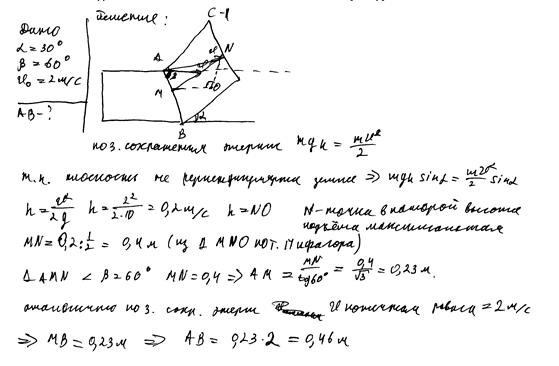 Дано
α = 30°
β = 60°
υ₀ = 2 м/с
AB - ?
Решение:
C-1
A
N
M
B
α
по з. сохранения энергии mgh = mυ²/2
т.к. плоскость не перпендикулярна земле => mgh sinα = mυ²/2 sinα
h = υ²/2g h = 2²/2·10 = 0,2 м/с h = NO N - точка в которой высота
подъёма максимальная
MN = 0,2 : 1/2 = 0,4 м (из Δ MNO по т. Пифагора)
Δ AMN < β = 60° MN = 0,4 => AM = MN/tg60° = 0,4/√3 = 0,23 м.
аналогично по з. сохр. энергии υ конечная равна = 2 м/с
=> MB = 0,23 м => AB = 0,23 · 2 = 0,46 м